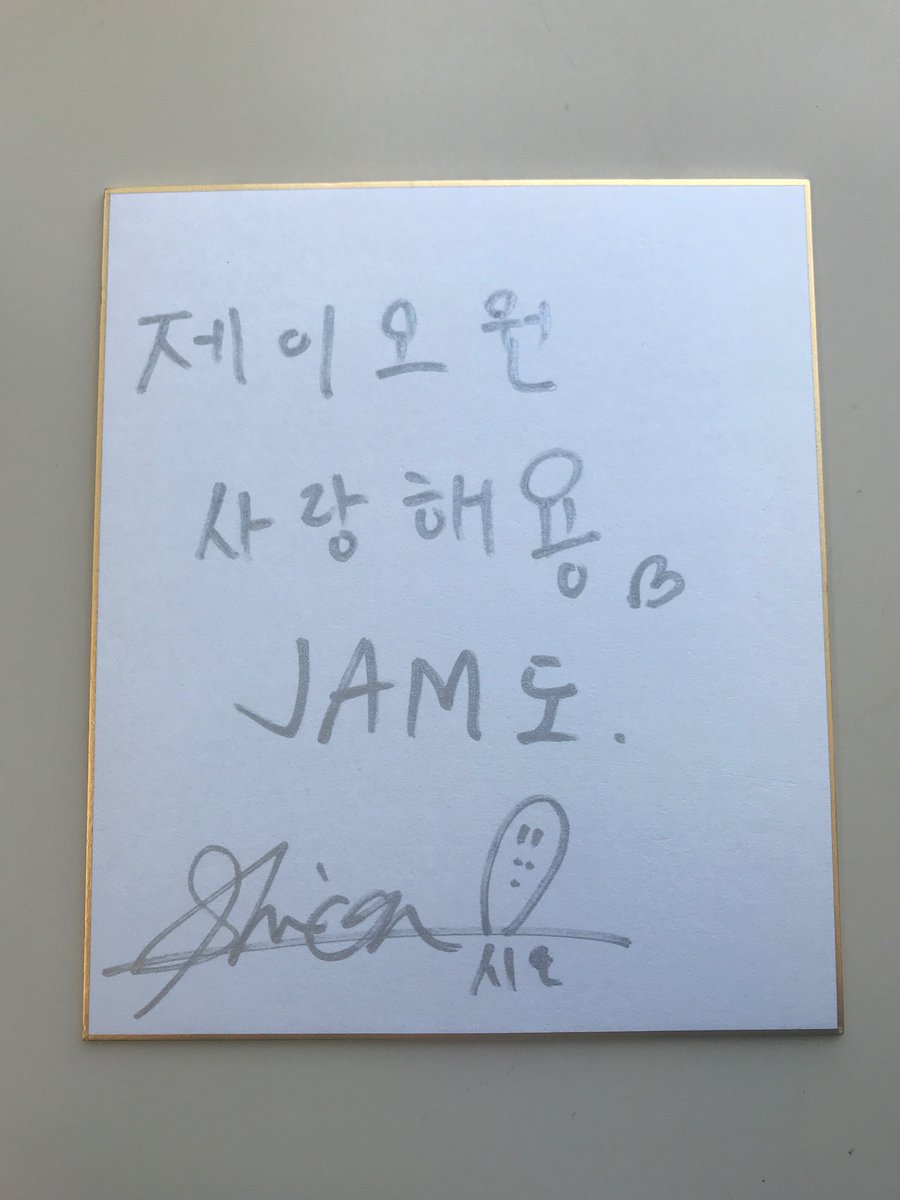 제이오원
사랑해용
JAM도.
Shion
시온